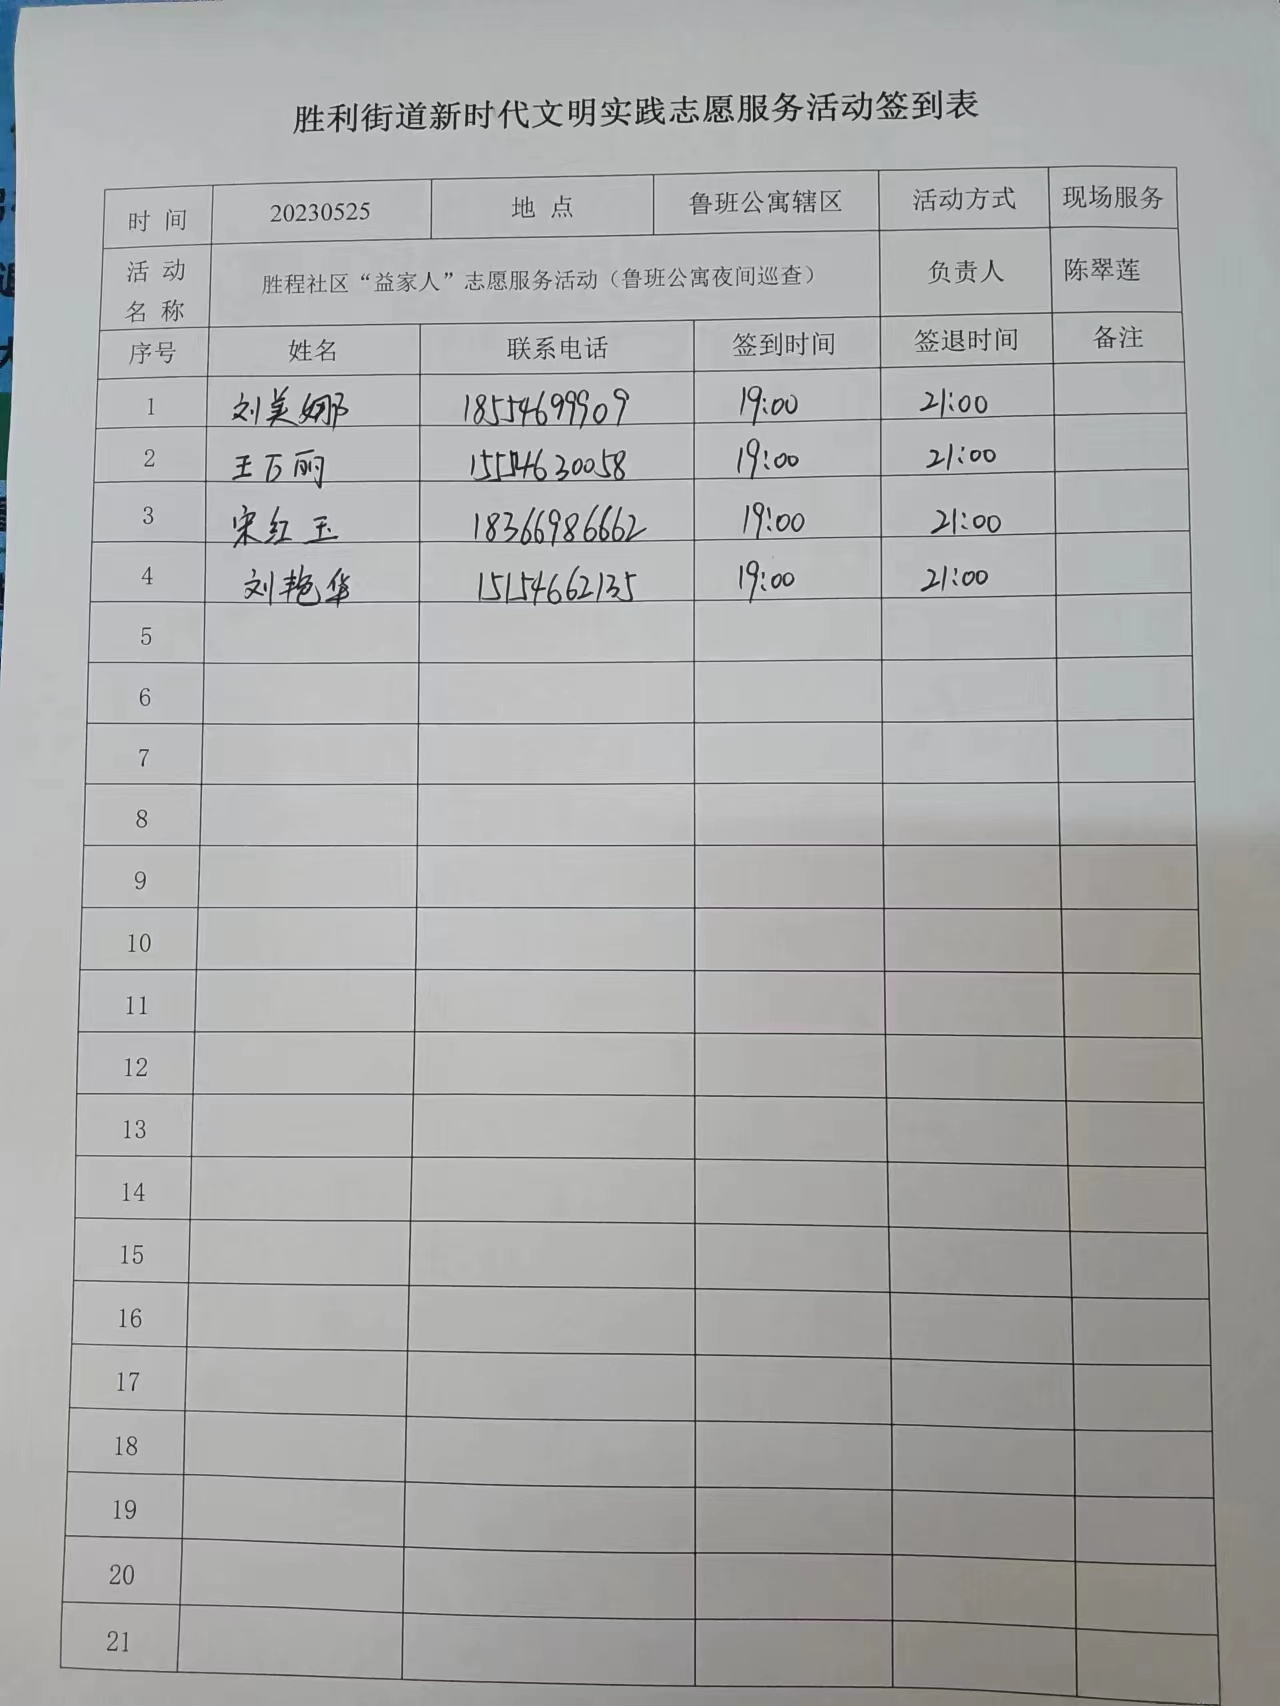 胜利街道新时代文明实践志愿服务活动签到表
时 间 20230525 地 点 鲁班公寓辖区 活动方式 现场服务
活 动 名 称 胜程社区“益家人”志愿服务活动（鲁班公寓夜间巡查） 负责人 陈翠莲
序号 姓名 联系电话 签到时间 签退时间 备注
1 刘美娜 18554699909 19:00 21:00
2 王万丽 15554630058 19:00 21:00
3 宋红玉 18366986662 19:00 21:00
4 刘艳华 15154662135 19:00 21:00
5
6
7
8
9
10
11
12
13
14
15
16
17
18
19
20
21